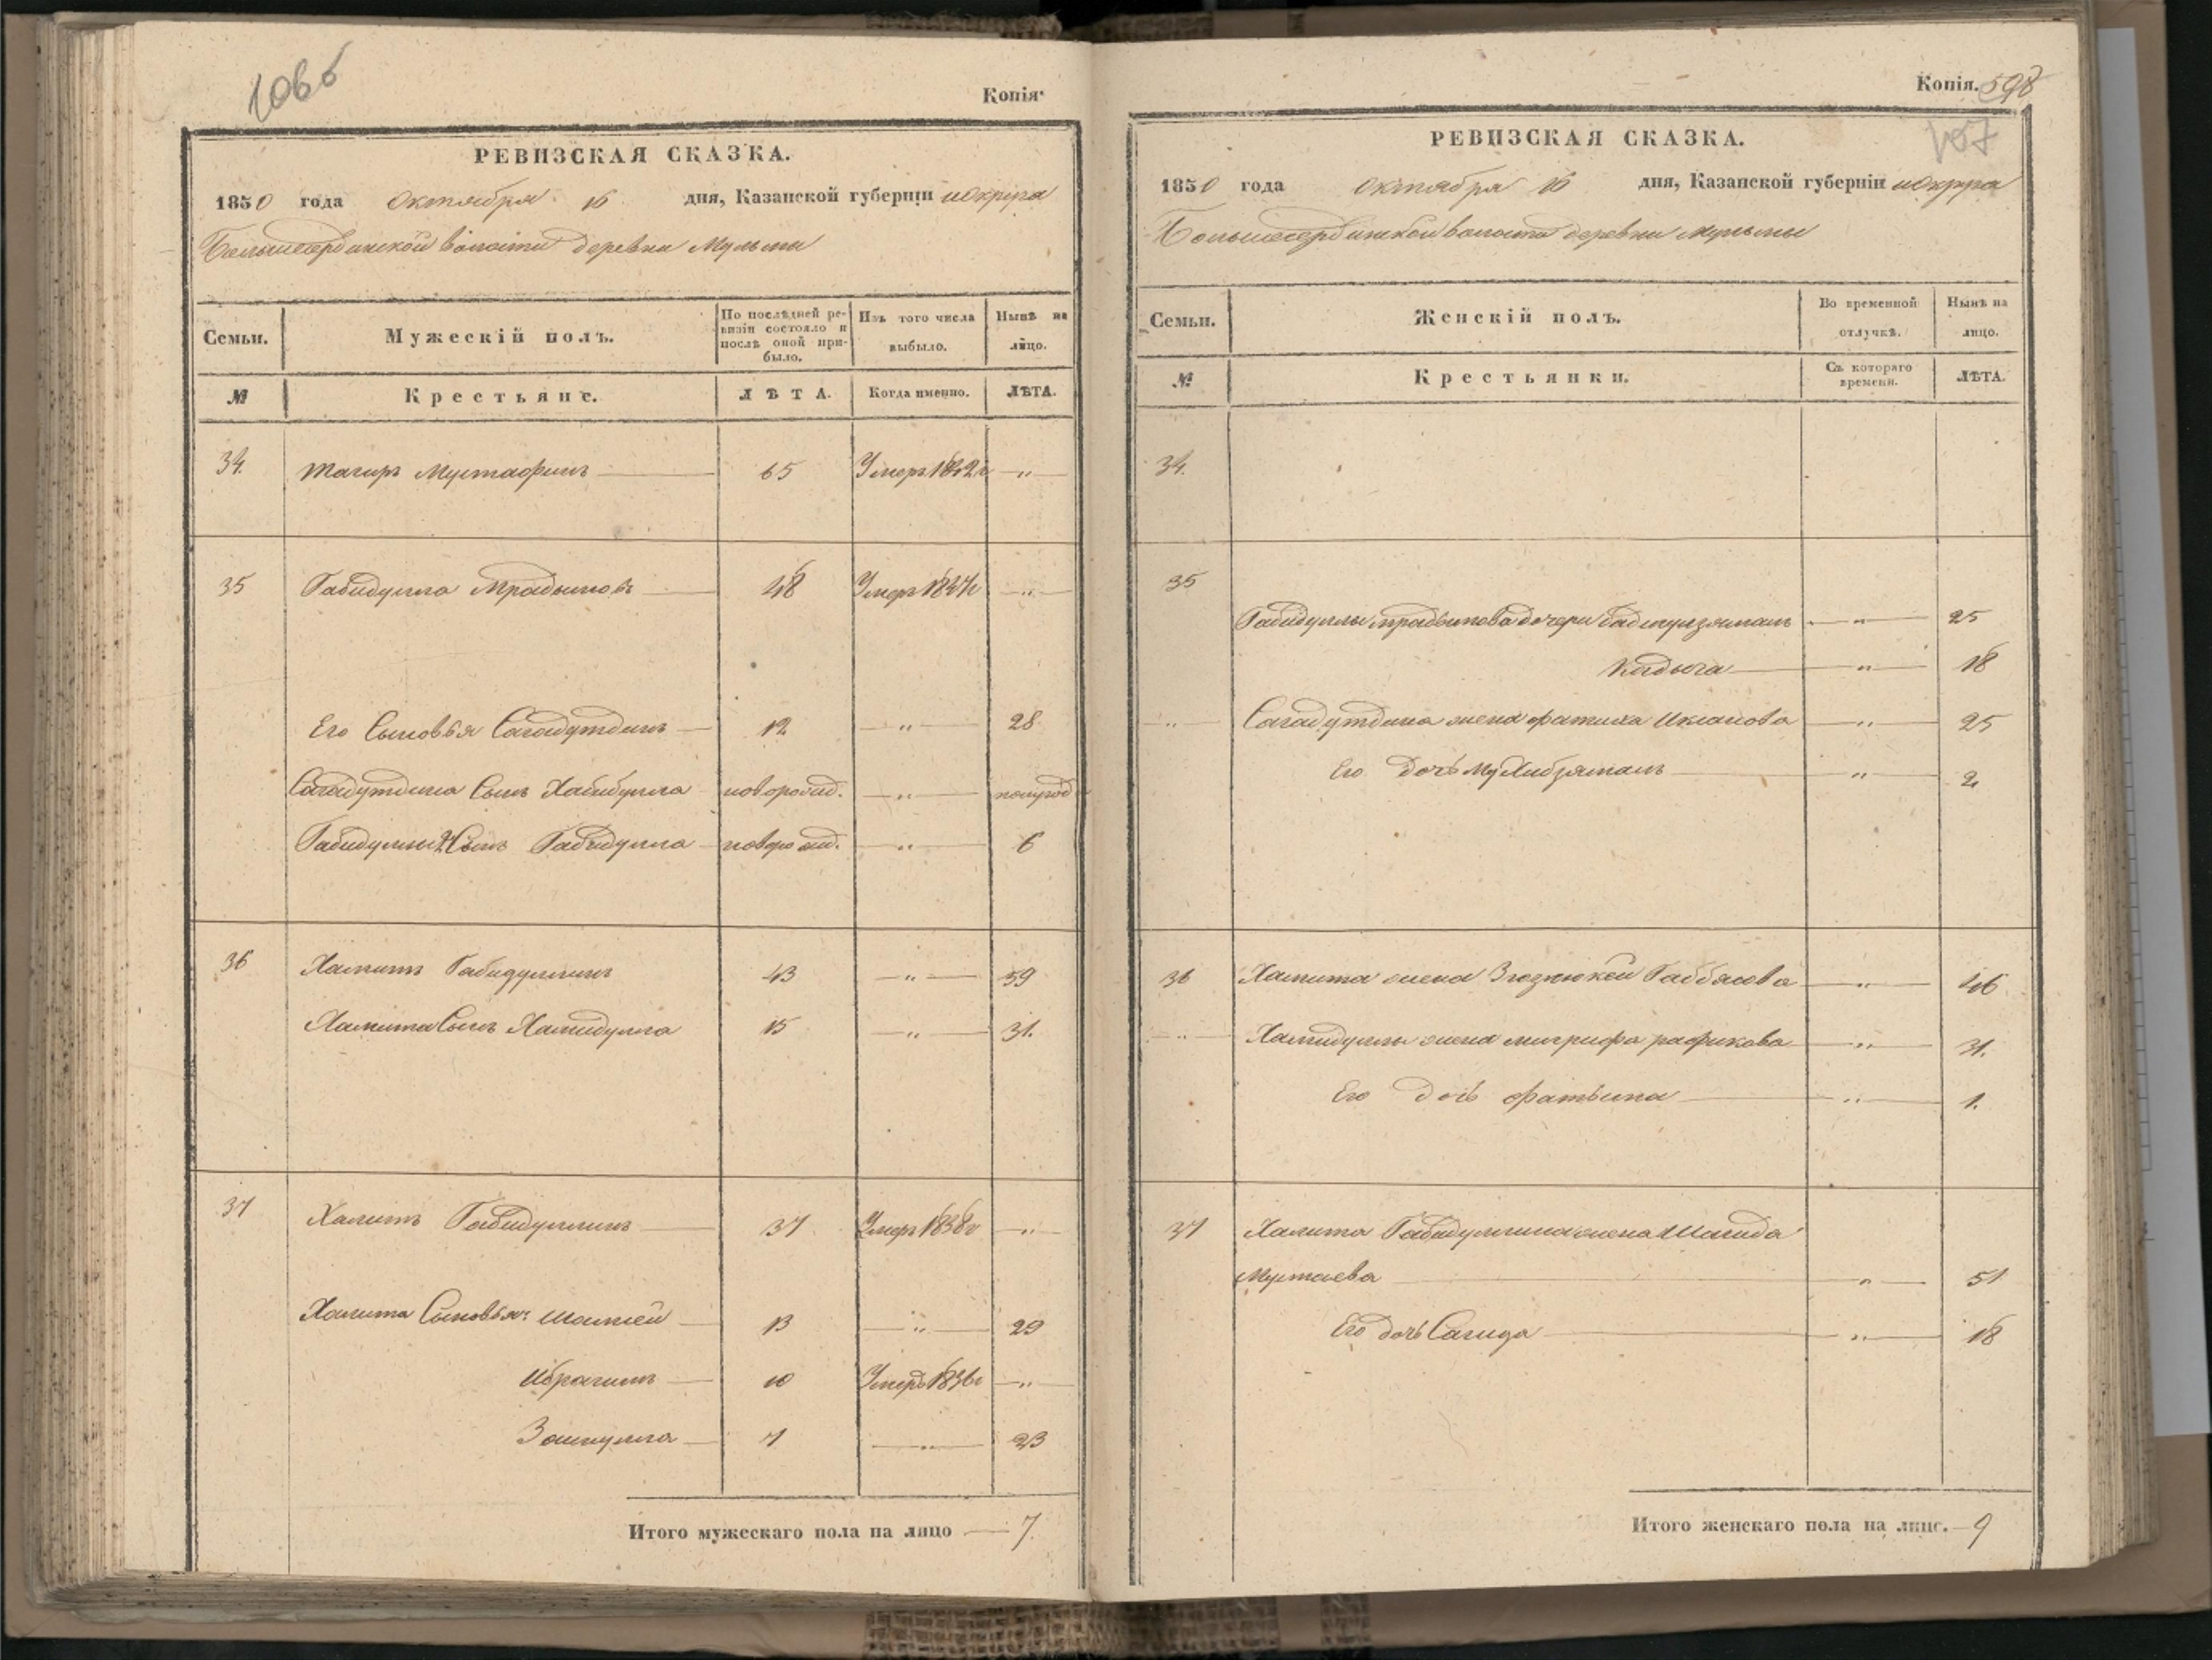 106 б
Копія.
РЕВИЗСКАЯ СКАЗКА.
1850 года октября 16 дня, Казанской губерніи и округа
Большесердинской волости деревни Мульмы
Семьи. Мужескій полъ. По послѣдней ревизіи состояло и послѣ оной прибыло. Изъ того числа выбыло. Нынѣ на лицо.
№ Крестьяне. ЛѢТА. Когда именно. ЛѢТА.
34. Тагиръ Мустафинъ 65 Умеръ 1842 г „
35 Габидулла 48 Умеръ „
Его Сыновья Сагадутдинъ 12 „ 28
Сагадутдина Сынъ Хабибулла новорожд. „ полугод
Габидуллы 2й Сынъ новорожд. „ 6
36 Хамитъ Габидуллинъ 43 „ 59
Хамита Сынъ Хамидулла 15 „ 31.
37 Халитъ Габидуллинъ 37 Умеръ 1838 г „
Халита Сыновья: Шамгей 13 „ 29
Ибрагимъ 10 Умеръ 1836 г „
Зайнулла 7 „ 23
Итого мужескаго пола на лицо 7.
Копія. 598
107
РЕВИЗСКАЯ СКАЗКА.
1850 года октября 16 дня, Казанской губерніи и округа
Большесердинской волости деревни Мульмы
Семьи. Женскій полъ. Во временной отлучкѣ. Нынѣ на лицо.
№ Крестьянки. Съ котораго времени. ЛѢТА.
34.
35
Габидуллы дочери Бадигулзяманъ „ 25
Кадыча „ 18
„ Сагадутдина жена Фатиха „ 25
Его дочь „ 2
36 Хамита жена Габбасова „ 46
„ Хамидуллы жена Мигрифа Рафикова „ 31.
Его дочь Фатыма „ 1.
37 Халита Габидуллина жена Шагида
Мустаева „ 51
Его дочь Сагида „ 18
Итого женскаго пола на лицо. 9